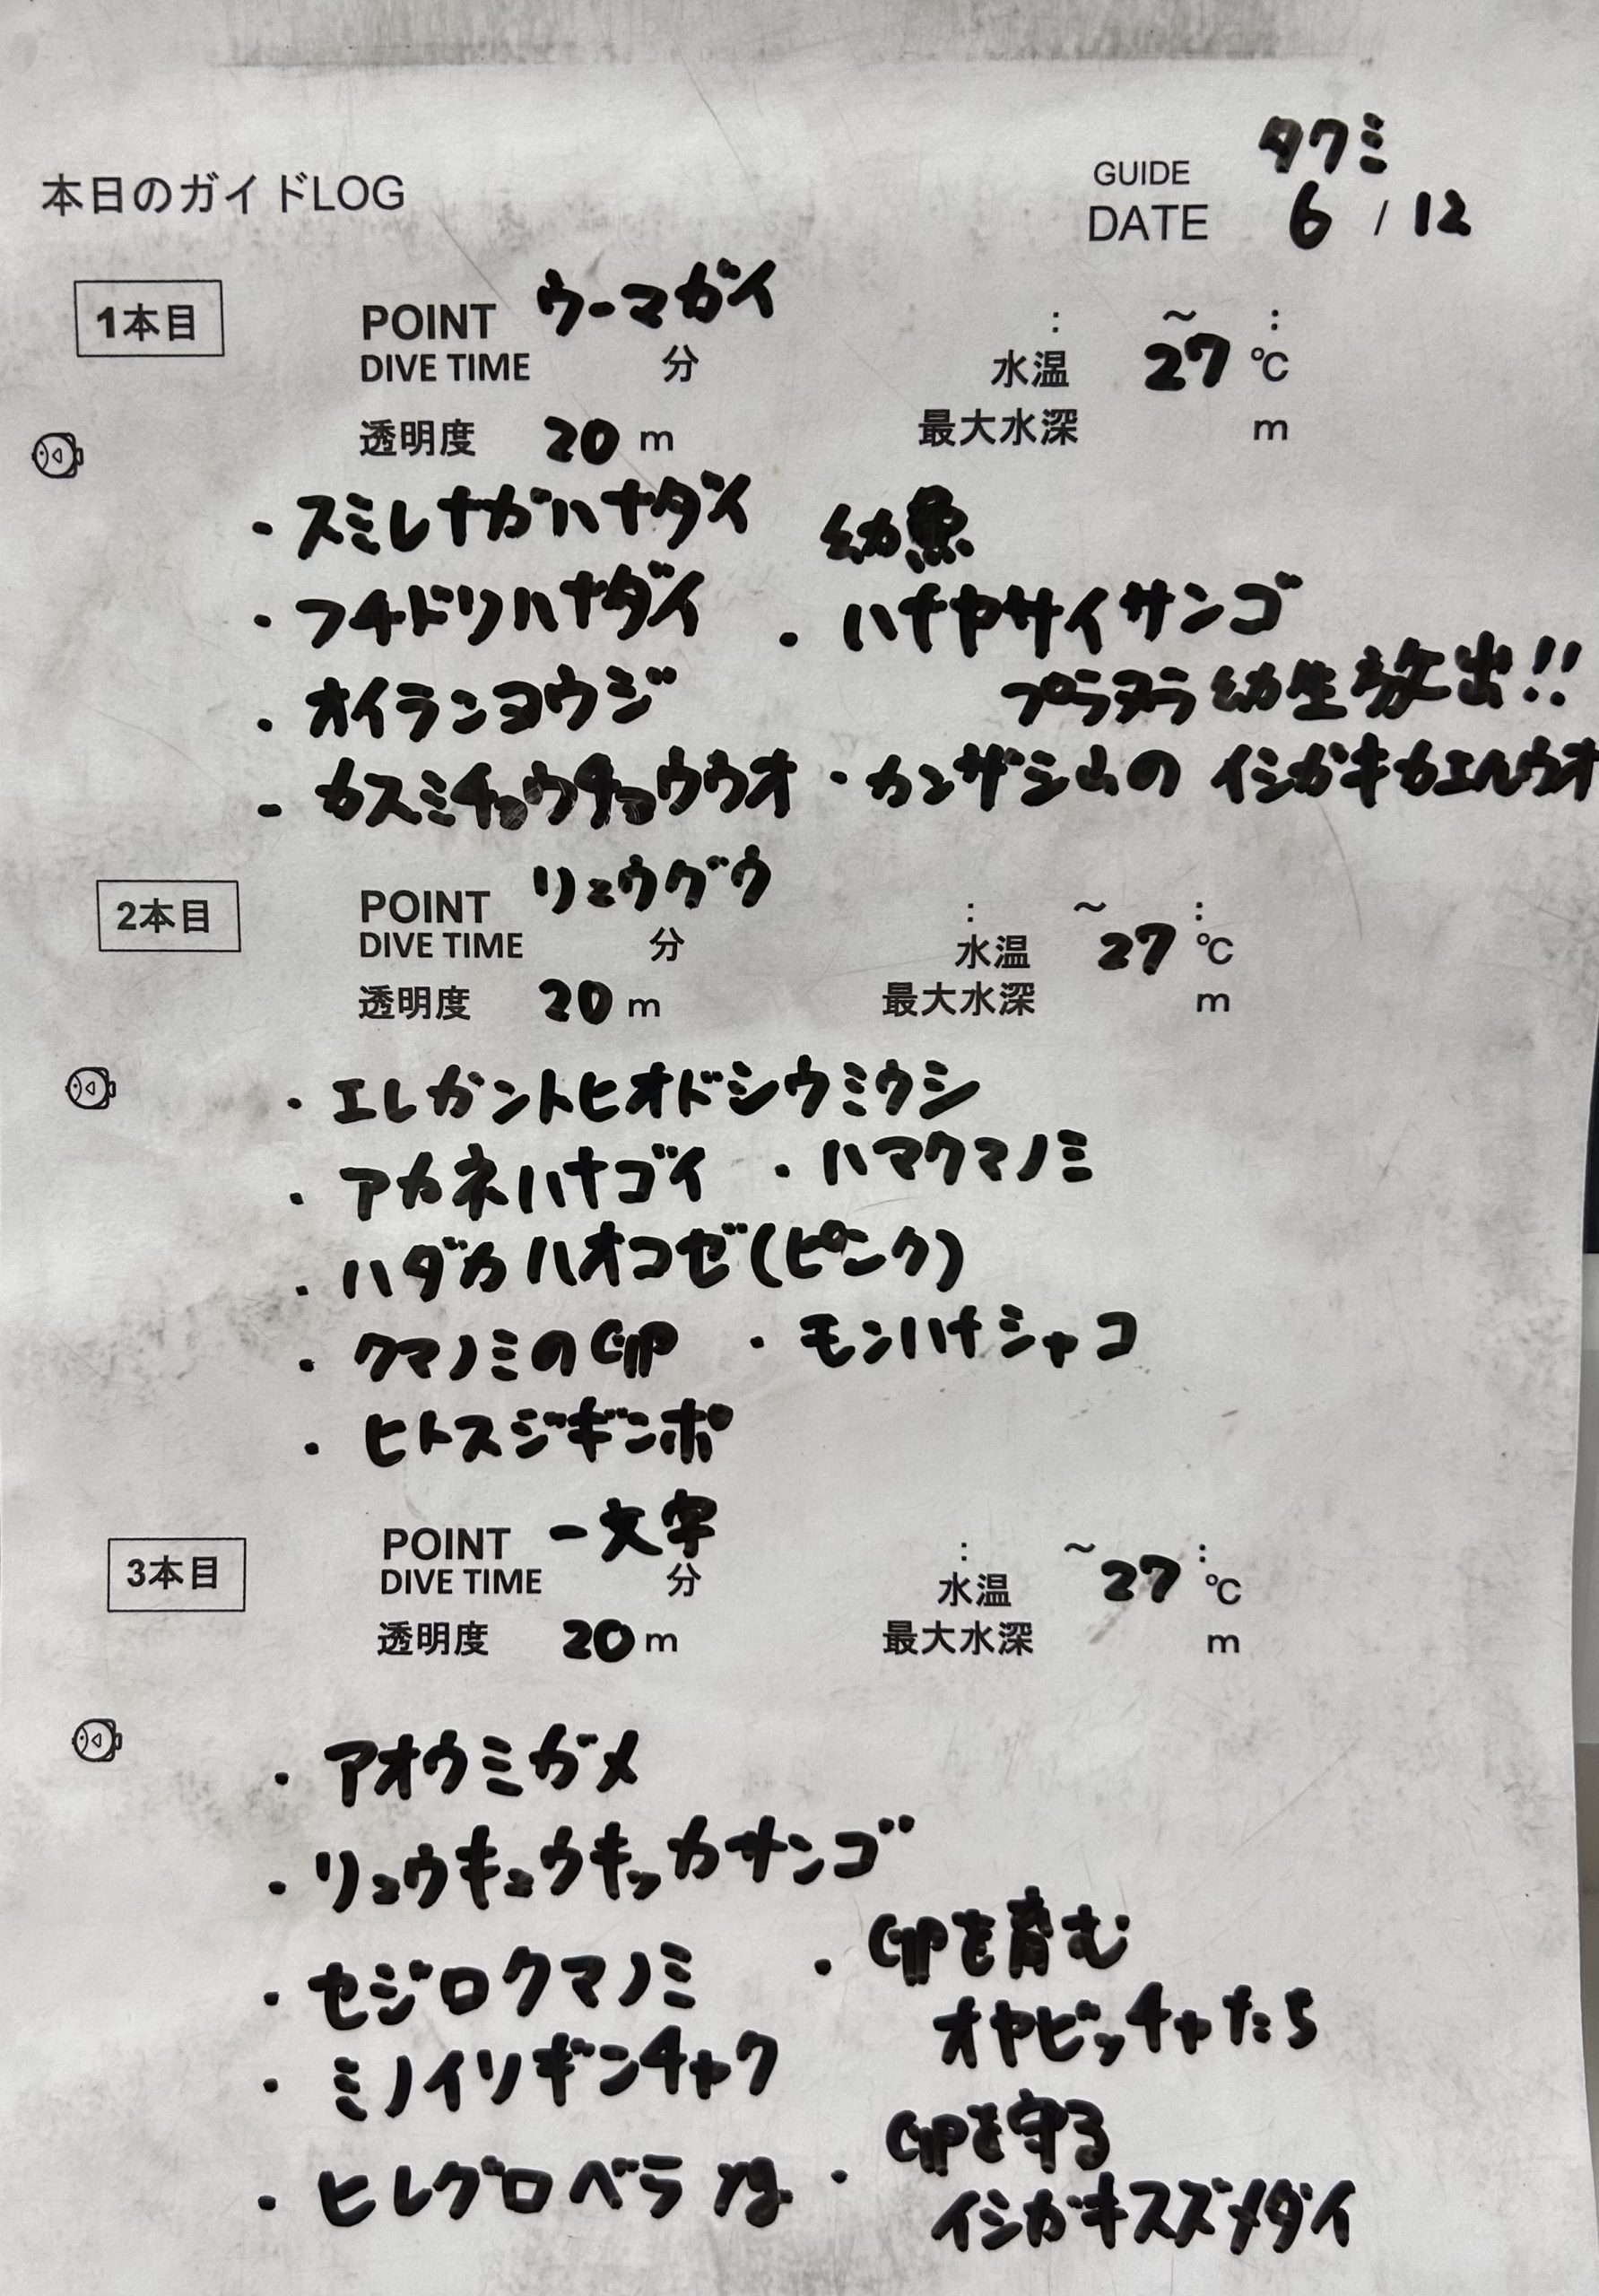 本日のガイドLOG
GUIDE タクミ
DATE 6 / 12
1本目
POINT ウーマガイ : ～ :
DIVE TIME 分 水温 27 ℃
透明度 20 m 最大水深 m
・スミレナガハナダイ 幼魚
・フチドリハナダイ
・ハナヤサイサンゴ
プラヌラ幼生放出!!
・オイランヨウジ
・カスミチョウチョウウオ
・カンザシ山の イシガキカエルウオ
2本目
POINT リュウグウ : ～ :
DIVE TIME 分 水温 27 ℃
透明度 20 m 最大水深 m
・エレガントヒオドシウミウシ
・アカネハナゴイ ・ハマクマノミ
・ハダカハオコゼ(ピンク)
・クマノミの卵 ・モンハナシャコ
・ヒトスジギンポ
3本目
POINT 一文字 : ～ :
DIVE TIME 分 水温 27 ℃
透明度 20 m 最大水深 m
・アオウミガメ
・リュウキュウキッカサンゴ
・セジロクマノミ
・ミノイソギンチャク
・ヒレグロベラ yg
・卵を育む
オヤビッチャたち
・卵を守る
イシガキスズメダイ